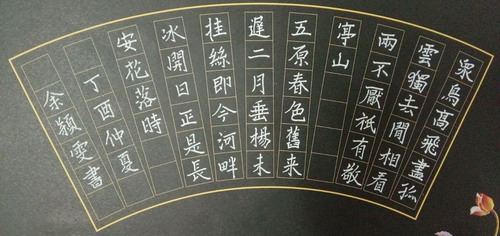 衆鳥高飛盡孤
雲獨去閒相看
兩不厭衹有敬
亭山
五原春色舊来
遲二月垂楊未
挂絲即今河畔
冰開日正是長
安花落時
丁酉仲夏
余潁雯書